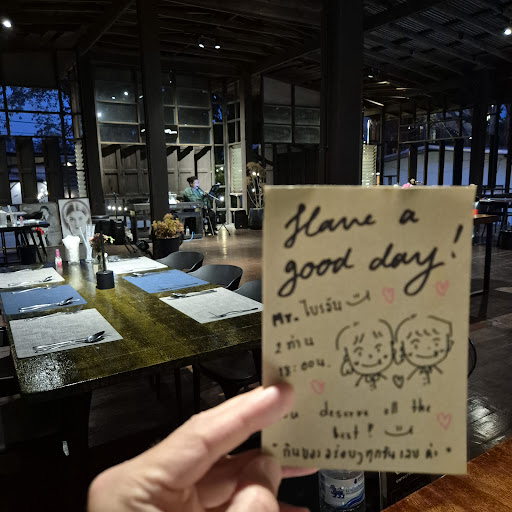 Have a
good day!
Mr. ไบรอัน
2 ท่าน
18:00น.
deserve all the
best!
"กินของอร่อยๆทุกวันเลยค่ะ"